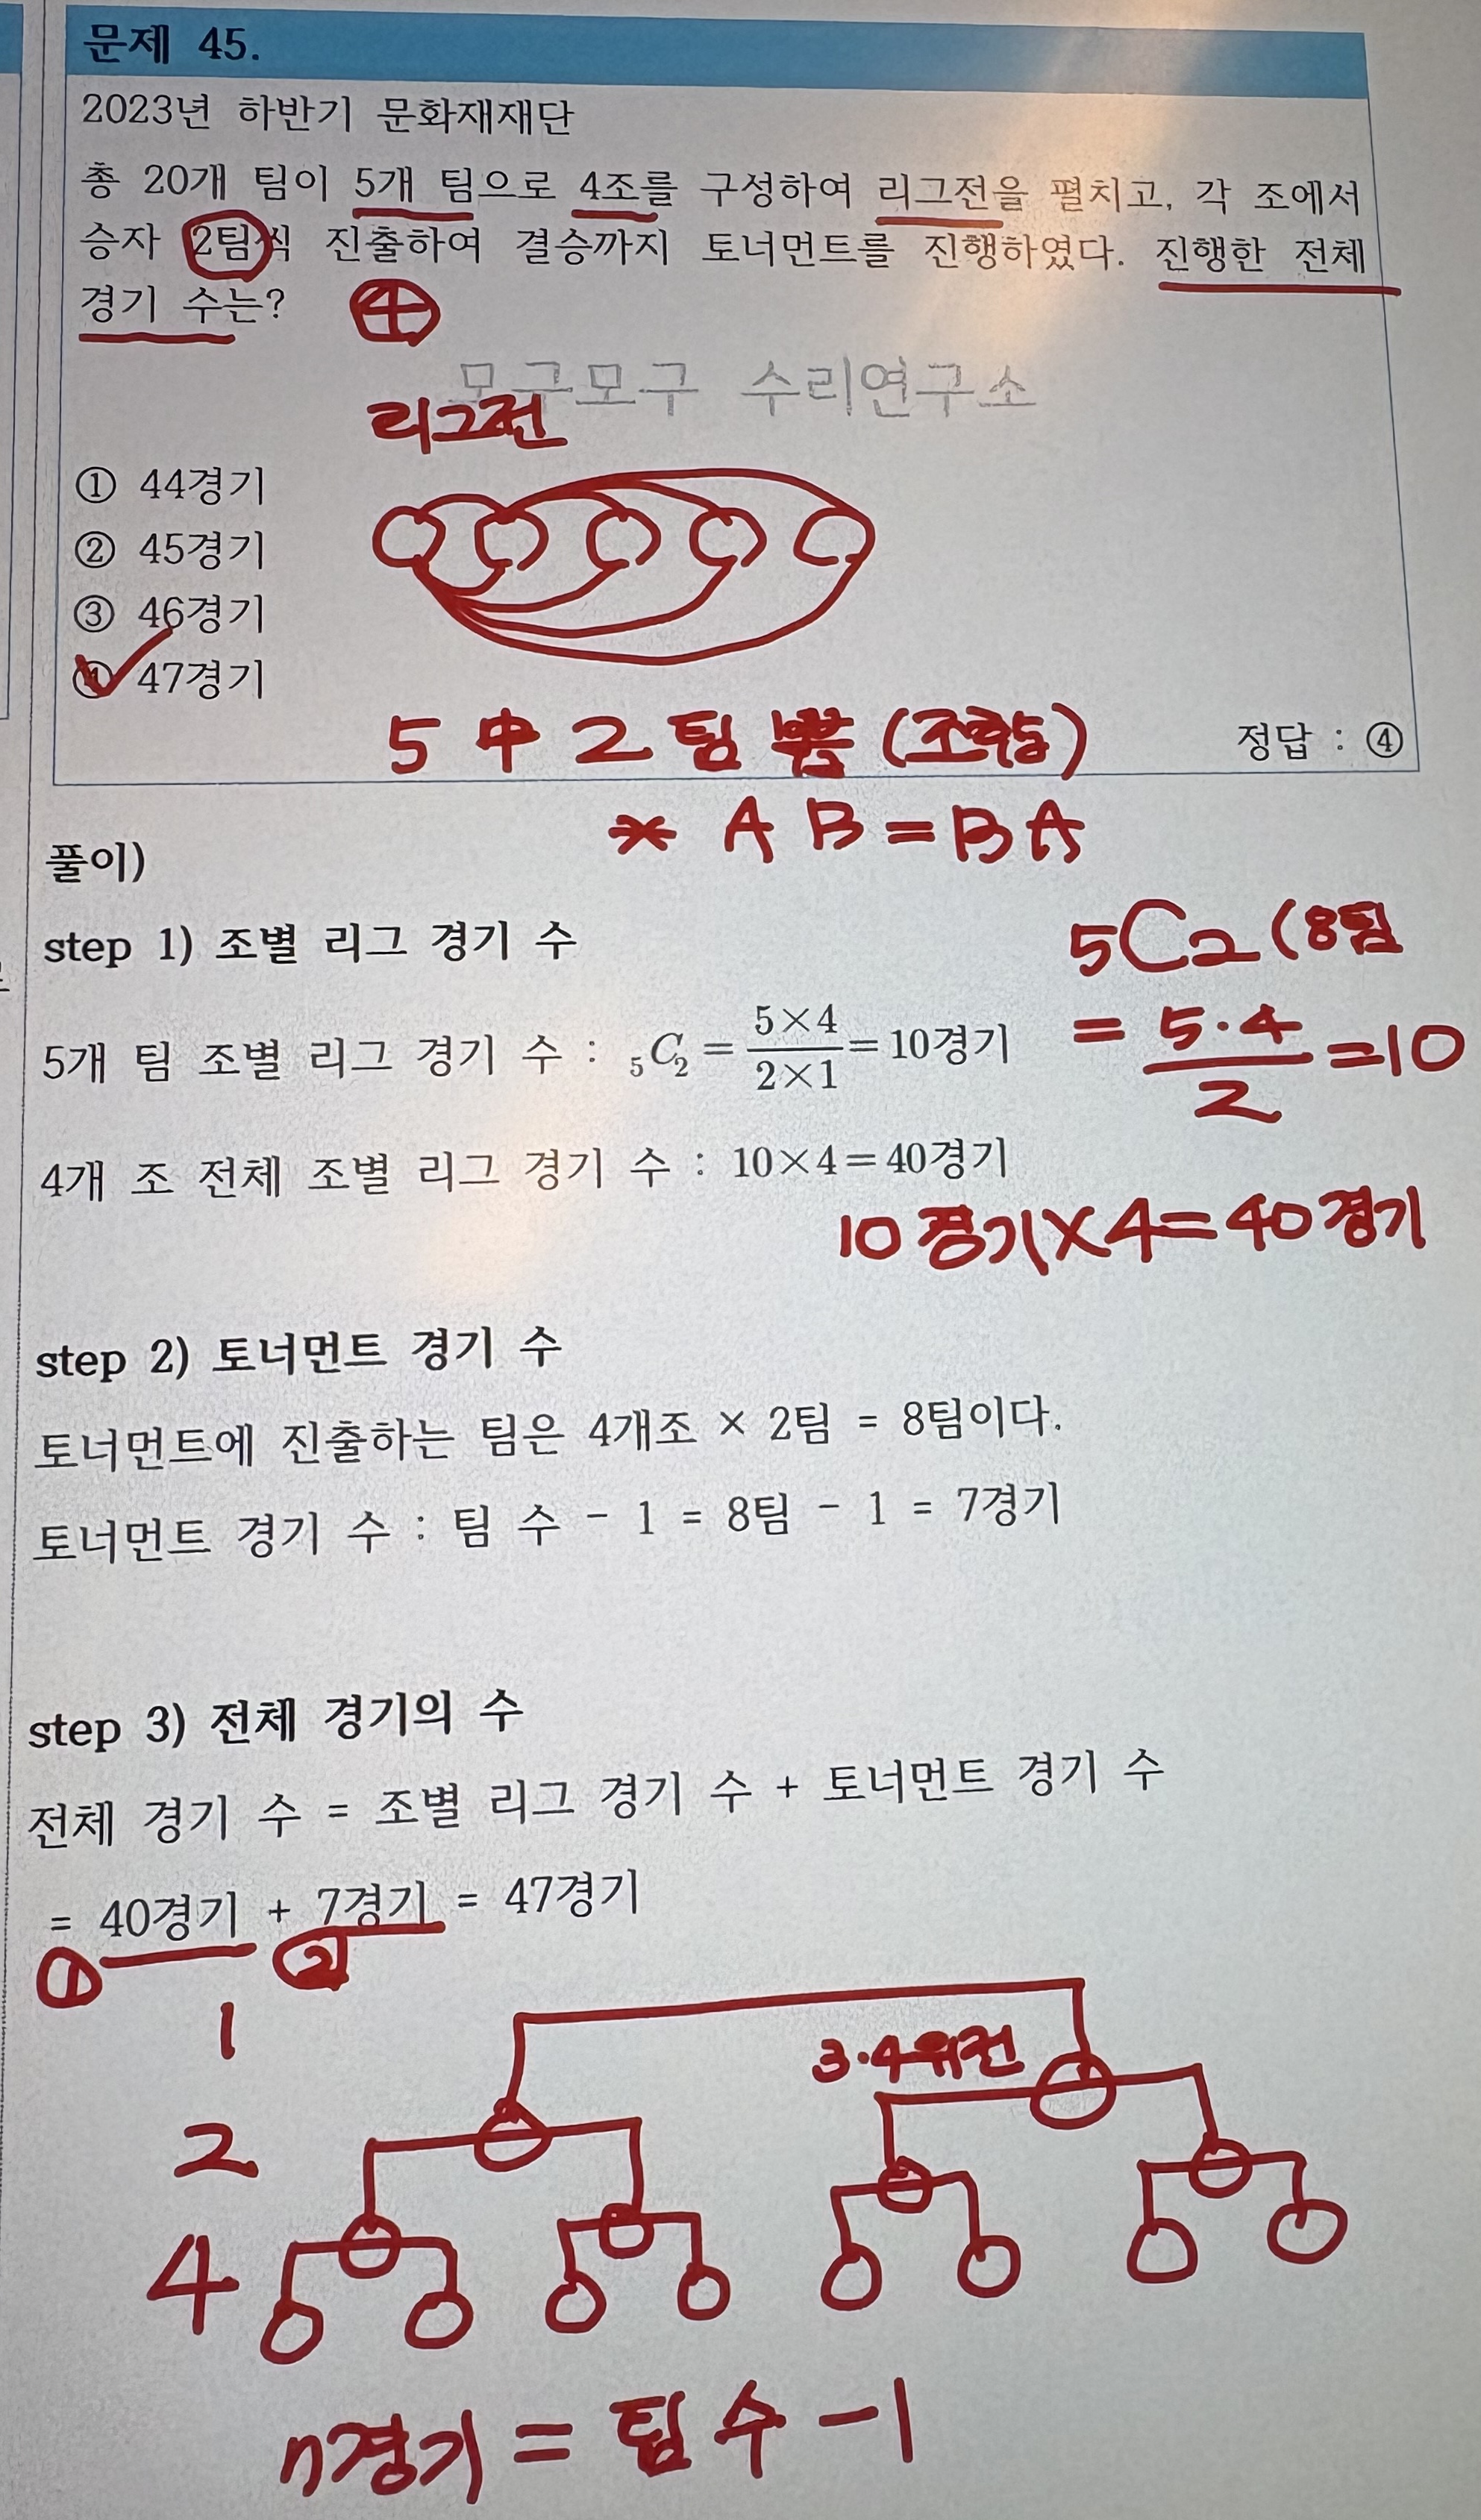 문제 45.
2023년 하반기 문화재재단
총 20개 팀이 5개 팀으로 4조를 구성하여 리그전을 펼치고, 각 조에서
승자 2팀씩 진출하여 결승까지 토너먼트를 진행하였다. 진행한 전체
경기 수는?
④
모구모구 수리연구소
리그전
① 44경기
② 45경기
③ 46경기
④ 47경기
5 中 2 팀 뽑음 (조합)
정답 : ④
* A B = B A
풀이)
step 1) 조별 리그 경기 수
5C2 (8팀
5개 팀 조별 리그 경기 수 : ₅C₂ = 5×4 / 2×1 = 10경기
= 5·4 / 2 = 10
4개 조 전체 조별 리그 경기 수 : 10×4=40경기
10경기×4=40경기
step 2) 토너먼트 경기 수
토너먼트에 진출하는 팀은 4개조 × 2팀 = 8팀이다.
토너먼트 경기 수 : 팀 수 - 1 = 8팀 - 1 = 7경기
step 3) 전체 경기의 수
전체 경기 수 = 조별 리그 경기 수 + 토너먼트 경기 수
= 40경기 + 7경기 = 47경기
① ②
1
3·4위전
2
4
n경기 = 팀 수 - 1